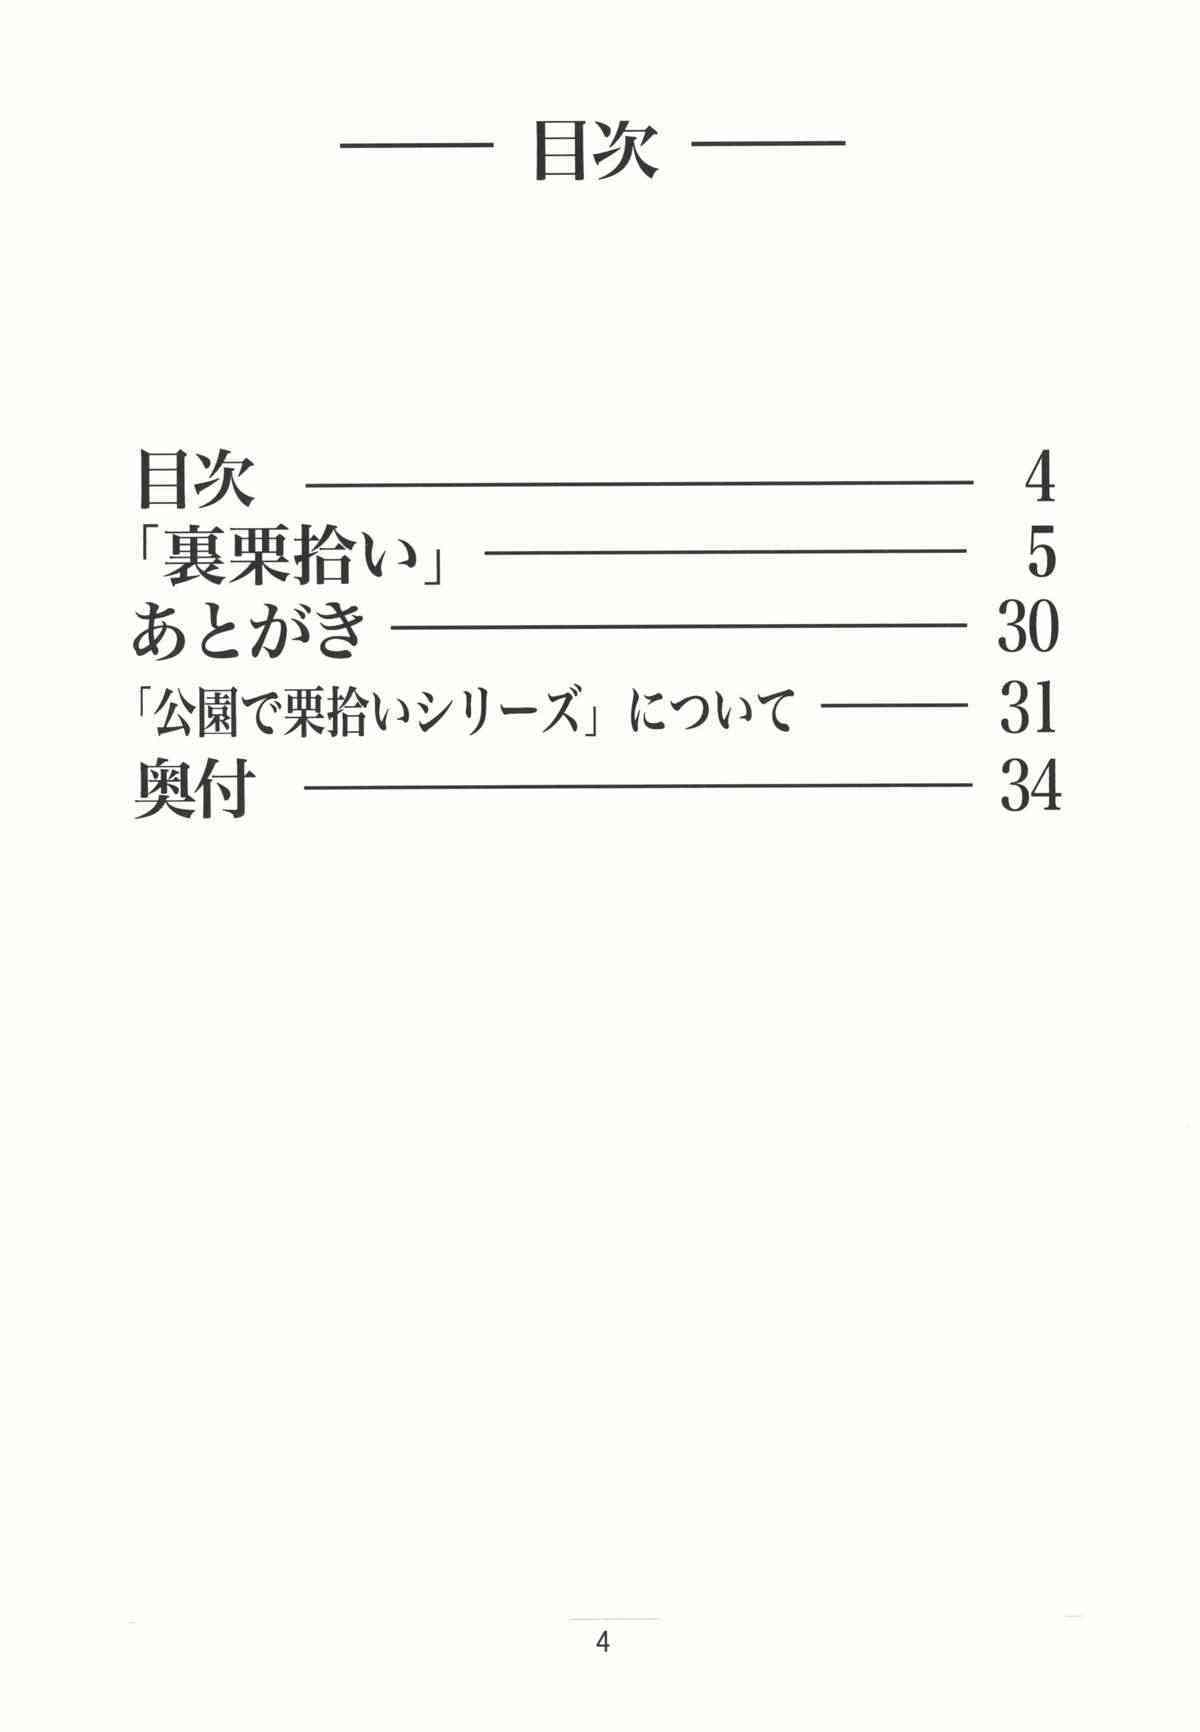 目次
目次 4
「裏栗拾い」 5
あとがき 30
「公園で栗拾いシリーズ」について 31
奥付 34
4